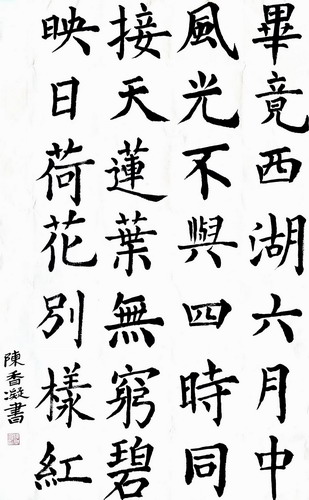 畢竟西湖六月中
風光不與四時同
接天蓮葉無窮碧
映日荷花別樣紅
陳香凝書